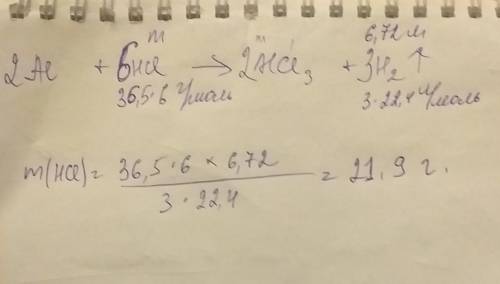 m m 6,72 л
2Al + 6HCl → 2AlCl₃ + 3H₂ ↑
36,5·6 г/моль 3·22,4 л/моль
m(HCl) = 36,5·6 × 6,72 / 3·22,4 = 21,9 г.